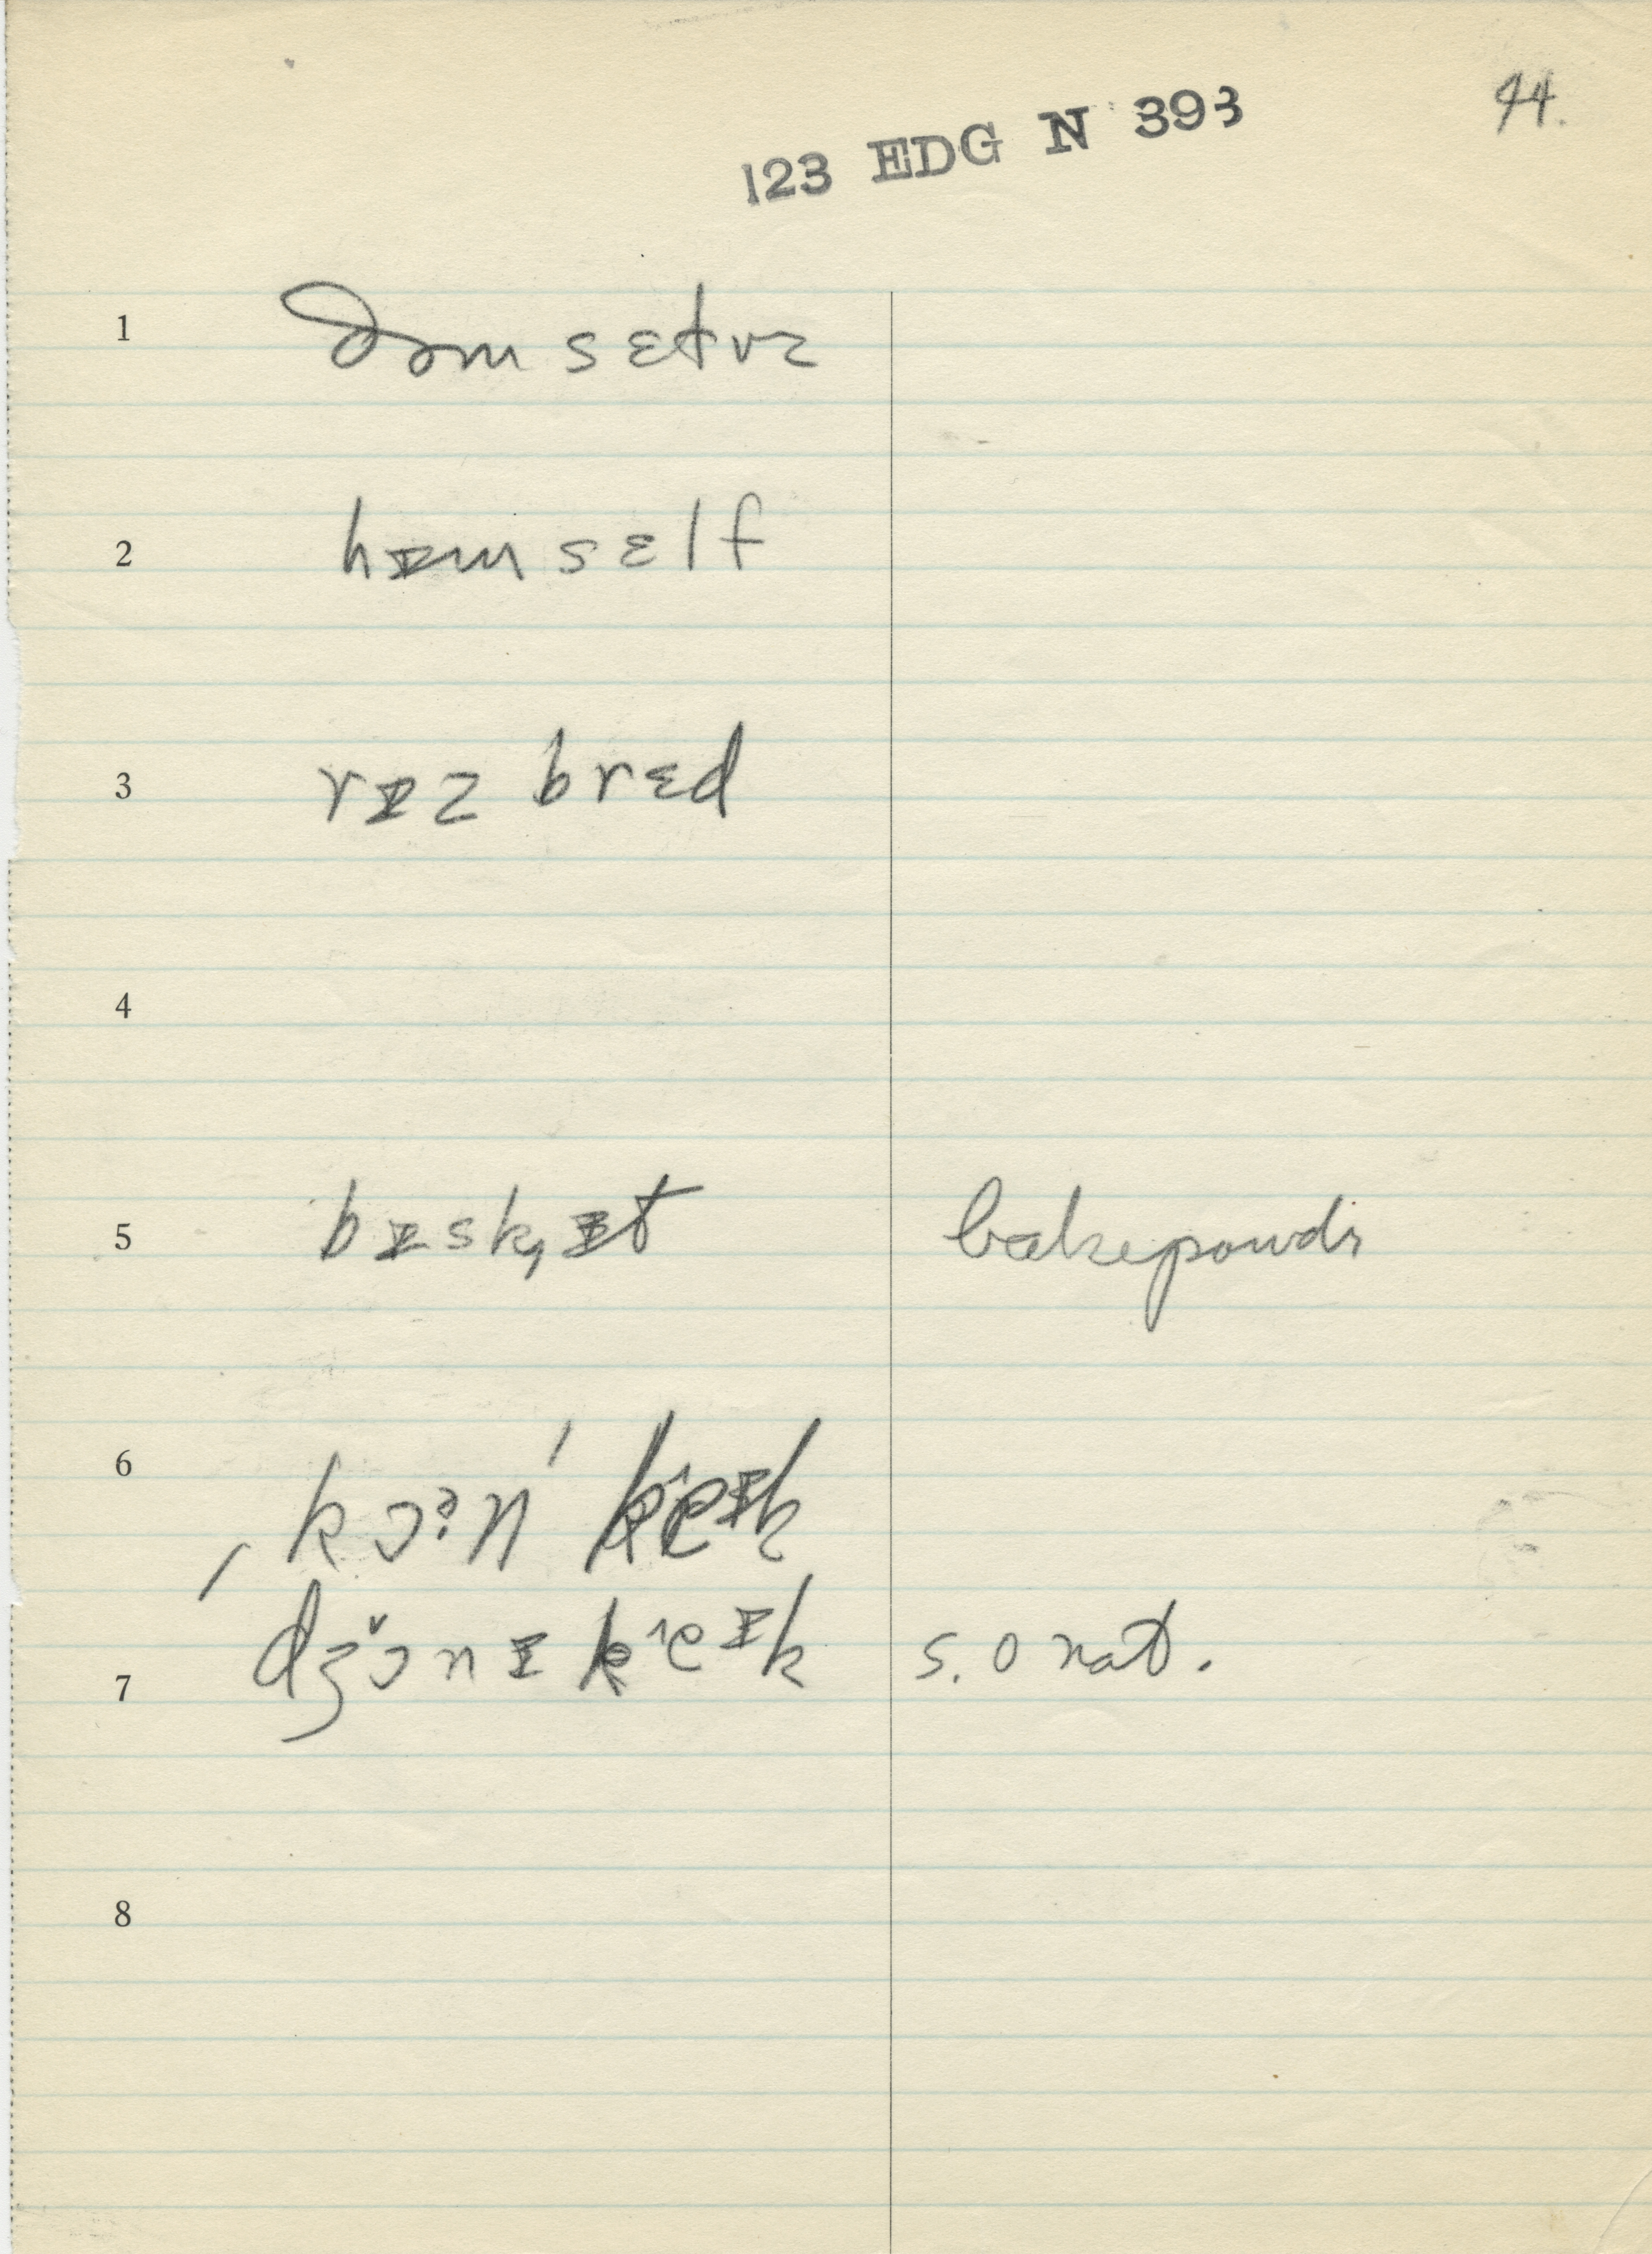 44.
123 EDG N 393
1 ðəm sɛtvz
2 hɪmsɛlf
3 rɪz brɛd
4
5 bɪsk,ɪt bakepowdr
6 ˌkɔᵊn' keɪk
7 dʒɔnɪ keɪk s. o nat.
8